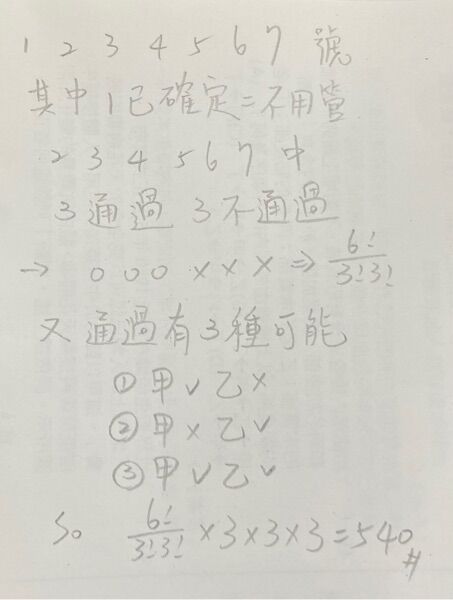 1 2 3 4 5 6 7 號
其中 1 已確定=不用管
2 3 4 5 6 7 中
3 通過 3 不通過
→ o o o x x x ⇒ 6!/3!3!
又通過有 3 種可能
① 甲 ✓ 乙 ×
② 甲 × 乙 ✓
③ 甲 ✓ 乙 ✓
So 6!/3!3! × 3 × 3 × 3 = 540 #